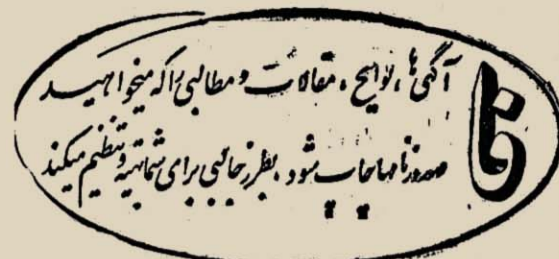 فا
آگهی ها ، لوایح ، مقالات و مطالبی را که میخواهید
در روزنامه ها چاپ شود ، بطرز جالبی برای شما تهیه و تنظیم میکند